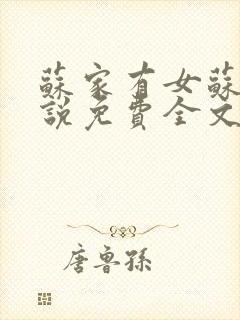 蘇家有女蘇
說免費全文
唐魯孫